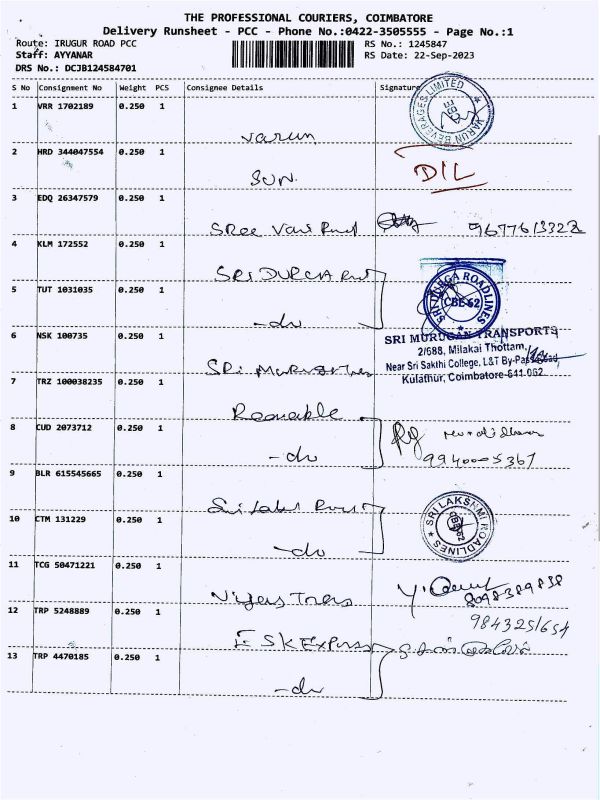 THE PROFESSIONAL COURIERS, COIMBATORE
Delivery Runsheet - PCC - Phone No.:0422-3505555 - Page No.:1
Route: IRUGUR ROAD PCC RS No.: 1245847
Staff: AYYANAR RS Date: 22-Sep-2023
DRS No.: DCJB124584701
S No Consignment No Weight PCS Consignee Details Signature
1 VRR 1702189 0.250 1
varun
VARUN BEVERAGES LIMITED
2 HRD 344047554 0.250 1
SUN
DIL
3 EDQ 26347579 0.250 1
SRee Vari
4 KLM 172552 0.250 1
SRI DURGA
5 TUT 1031035 0.250 1
-do
SRI DURGA ROADLINES
CBE-62
6 NSK 100735 0.250 1
SRi Murugan
SRI MURUGAN TRANSPORTS
2/688, Milakai Thottam,
Near Sri Sakthi College, L&T By-Pass Road
Kulathur, Coimbatore-641 062
7 TRZ 100038235 0.250 1
Reenable
8 CUD 2073712 0.250 1
-do
9 BLR 615545665 0.250 1
Sri Laksmi
10 CTM 131229 0.250 1
-do
SRI LAKSHMI ROADLINES
11 TCG 50471221 0.250 1
8098389838
12 TRP 5248889 0.250 1
ESK Express
9843251654
13 TRP 4470185 0.250 1
-do